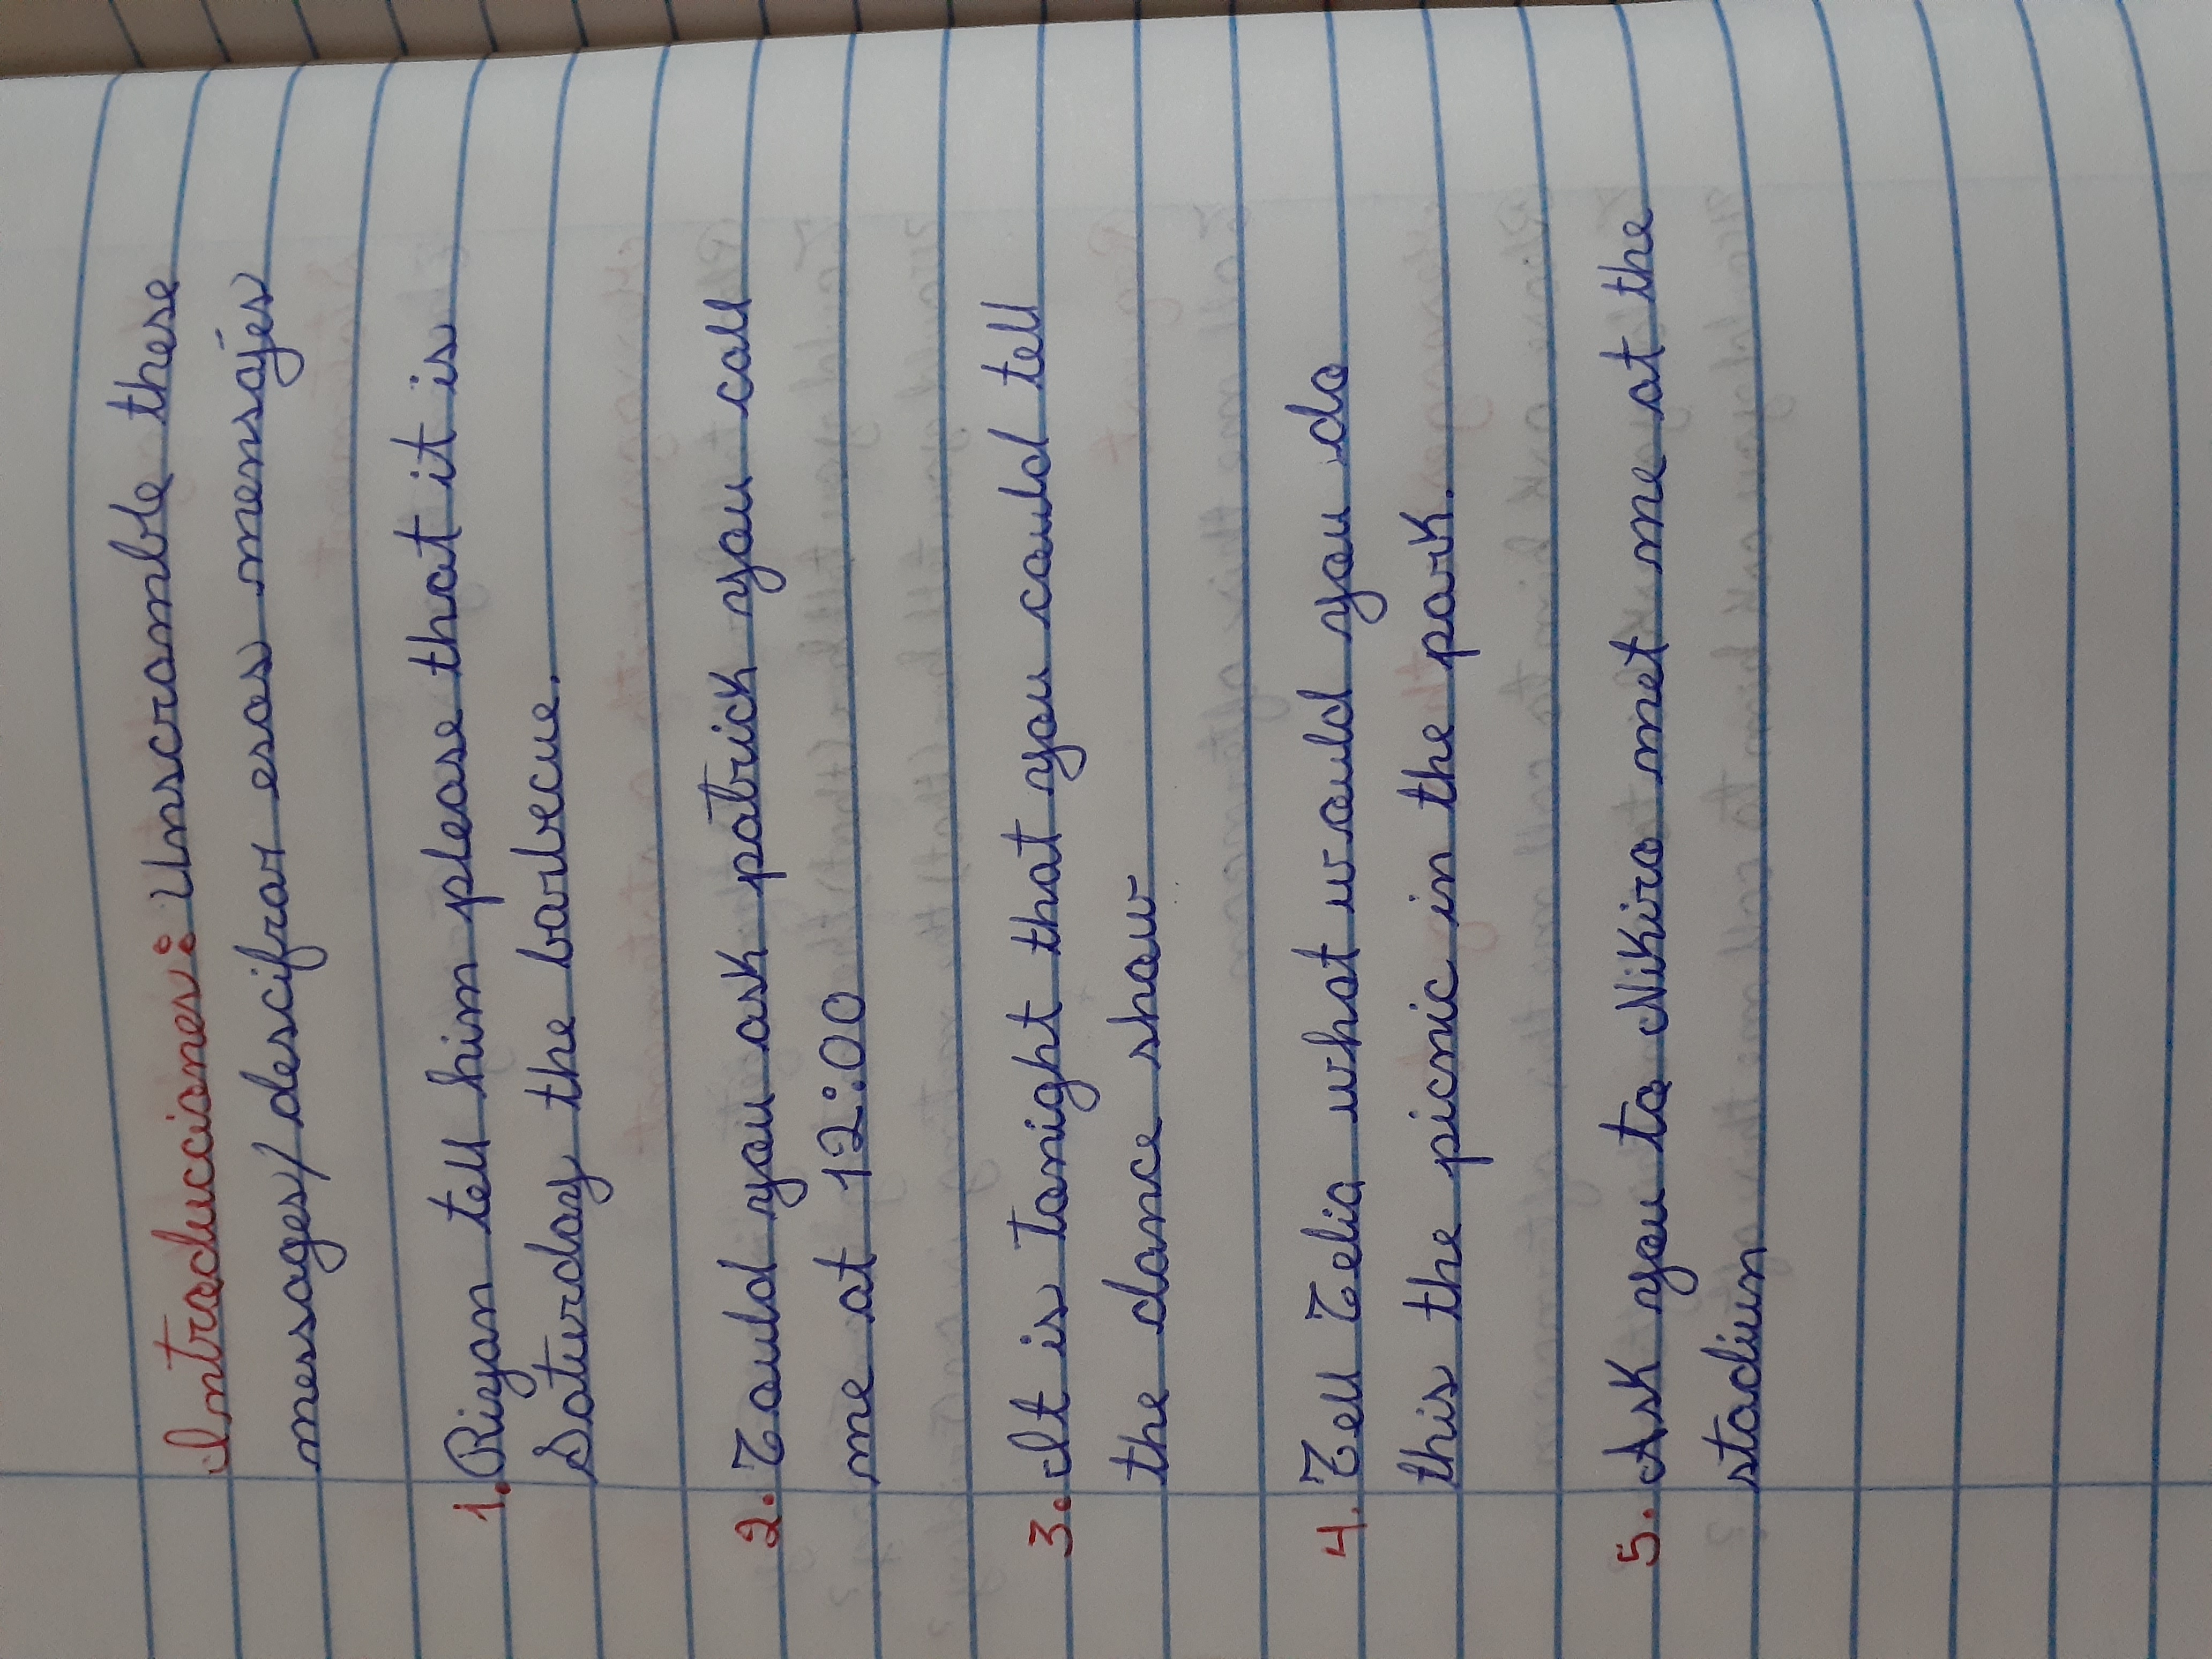 Introducciones: Unscramble these
messages/descifrar esos mensajes
1. Riyan tell him please that it is
Saturday the barbecue.
2. Could you ask patrick you call
me at 12:00
3. It is Tonight that you could tell
the dance show
4. Tell Celia what would you do
this the picnic in the park.
5. Ask you to Nikiro met me at the
stadiun